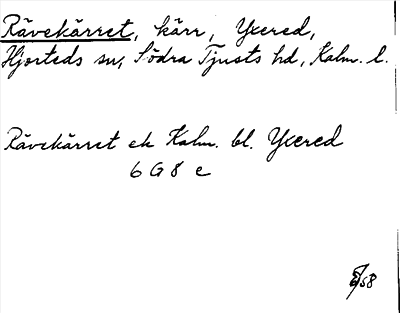 Rävekärret, kärr, Yxered,
Hjorteds sn, Södra Tjusts hd, Kalm. l.
Rävekärret ek Kalm. bl. Yxered
6 G 8 e
/58